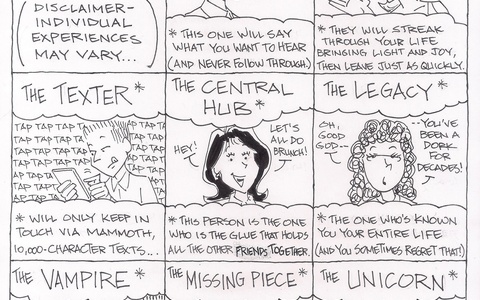 DISCLAIMER-
INDIVIDUAL
EXPERIENCES
MAY VARY...
* THIS ONE WILL SAY
WHAT YOU WANT TO HEAR
(AND NEVER FOLLOW THROUGH.)
* THEY WILL STREAK
THROUGH YOUR LIFE
BRINGING LIGHT AND JOY,
THEN LEAVE JUST AS QUICKLY.
THE TEXTER*
TAP TAP TAP TAP TAP TAP TAP
TAP TAP TAP TAP TAP
TAP TAP TAP TAP
TAP TAP TAP
TAP TAP TAP
TAP TAP
TAP TAP
* WILL ONLY KEEP IN
TOUCH VIA MAMMOTH,
10,000-CHARACTER TEXTS...
THE CENTRAL
HUB *
HEY!
LET'S
ALL DO
BRUNCH!
* THIS PERSON IS THE ONE
WHO IS THE GLUE THAT HOLDS
ALL THE OTHER FRIENDS TOGETHER.
THE LEGACY *
OH,
GOOD
GOD--
--YOU'VE
BEEN A
DORK
FOR
DECADES!
* THE ONE WHO'S KNOWN
YOU YOUR ENTIRE LIFE
(AND YOU SOMETIMES REGRET THAT!)
THE VAMPIRE *
THE MISSING PIECE *
THE UNICORN *